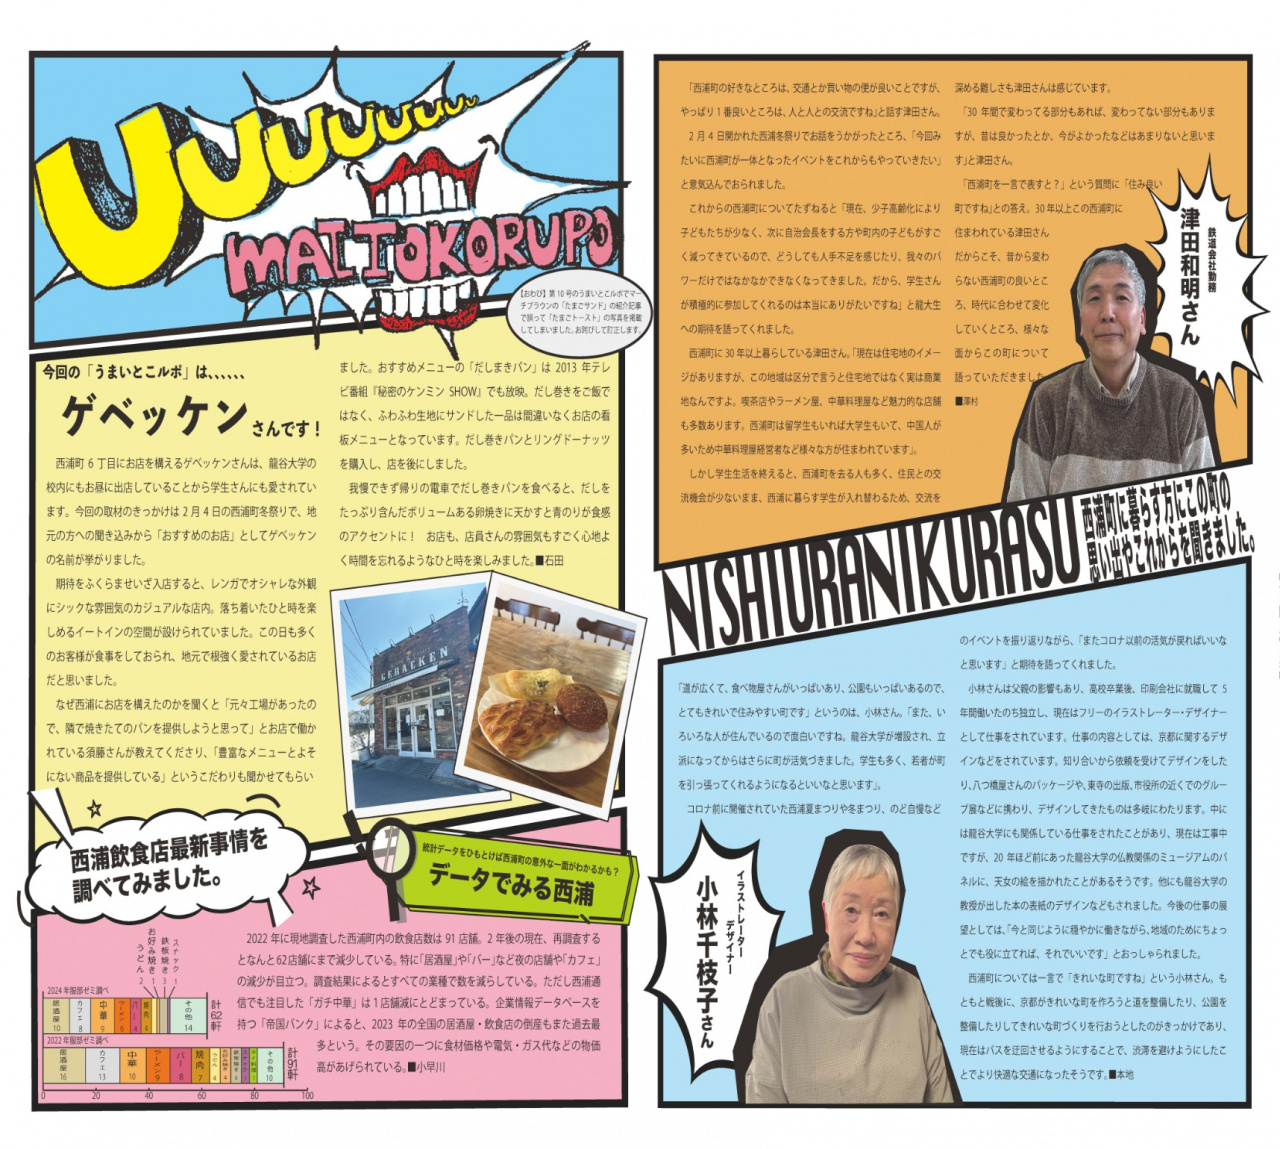 UUUUUUUUUU
MAITOKORUPO
【おわび】第10号のうまいとこルポでマー
チブラウンの「たまごサンド」の紹介記事
で誤って「たまごトースト」の写真を掲載
してしまいました。お詫びして訂正します。
今回の「うまいとこルポ」は、、、、、、
ゲベッケンさんです！
西浦町6丁目にお店を構えるゲベッケンさんは、龍谷大学の
校内にもお昼に出店していることから学生さんにも愛されてい
ます。今回の取材のきっかけは2月4日の西浦町冬祭りで、地
元の方への聞き込みから「おすすめのお店」としてゲベッケン
の名前が挙がりました。
期待をふくらませいざ入店すると、レンガでオシャレな外観
にシックな雰囲気のカジュアルな店内。落ち着いたひと時を楽
しめるイートインの空間が設けられていました。この日も多く
のお客様が食事をしておられ、地元で根強く愛されているお店
だと思いました。
なぜ西浦にお店を構えたのかを聞くと「元々工場があったの
で、隣で焼きたてのパンを提供しようと思って」とお店で働か
れている須藤さんが教えてくださり、「豊富なメニューとよそ
にない商品を提供している」というこだわりも聞かせてもらい
ました。おすすめメニューの「だしまきパン」は2013年テレ
ビ番組『秘密のケンミンSHOW』でも放映。だし巻きをご飯で
はなく、ふわふわ生地にサンドした一品は間違いなくお店の看
板メニューとなっています。だし巻きパンとリングドーナッツ
を購入し、店を後にしました。
我慢できず帰りの電車でだし巻きパンを食べると、だしを
たっぷり含んだボリュームある卵焼きに天かすと青のりが食感
のアクセントに！　お店も、店員さんの雰囲気もすごく心地よ
く時間を忘れるようなひと時を楽しみました。■石田
GEBACKEN
西浦飲食店最新事情を
調べてみました。
統計データをひもとけば西浦町の意外な一面がわかるかも？
データでみる西浦
2022年に現地調査した西浦町内の飲食店数は91店舗。2年後の現在、再調査する
となんと62店舗にまで減少している。特に「居酒屋」や「バー」など夜の店舗や「カフェ」
の減少が目立つ。調査結果によるとすべての業種で数を減らしている。ただし西浦通
信でも注目した「ガチ中華」は1店舗減にとどまっている。企業情報データベースを
持つ「帝国バンク」によると、2023年の全国の居酒屋・飲食店の倒産もまた過去最
多という。その要因の一つに食材価格や電気・ガス代などの物価
高があげられている。■小早川
うどん 2
お好み焼き 1
鉄板焼き 3
スナック 1
2024年服部ゼミ調べ
居酒屋 10
カフェ 8
中華 9
ラーメン 6
バー 4
焼肉 4
その他 14
計62軒
2022年服部ゼミ調べ
居酒屋 16
カフェ 13
中華 10
ラーメン 9
バー 8
焼肉 7
うどん 4
その他 10
計91軒
0 20 40 60 80 100
「西浦町の好きなところは、交通とか買い物の便が良いことですが、
やっぱり1番良いところは、人と人との交流ですね」と話す津田さん。
2月4日開かれた西浦冬祭りでお話をうかがったところ、「今回み
たいに西浦町が一体となったイベントをこれからもやっていきたい」
と意気込んでおられました。
これからの西浦町についてたずねると「現在、少子高齢化により
子どもたちが少なく、次に自治会長をする方や町内の子どもがすご
く減ってきているので、どうしても人手不足を感じたり、我々のパ
ワーだけではなかなかできなくなってきました。だから、学生さん
が積極的に参加してくれるのは本当にありがたいですね」と龍大生
への期待を語ってくれました。
西浦町に30年以上暮らしている津田さん。「現在は住宅地のイメー
ジがありますが、この地域は区分で言うと住宅地ではなく実は商業
地なんですよ。喫茶店やラーメン屋、中華料理屋など魅力的な店舗
も多数あります。西浦町は留学生もいれば大学生もいて、中国人が
多いため中華料理屋経営者など様々な方が住まわれています」。
しかし学生生活を終えると、西浦町を去る人も多く、住民との交
流機会が少ないまま、西浦に暮らす学生が入れ替わるため、交流を
深める難しさも津田さんは感じています。
「30年間で変わってる部分もあれば、変わってない部分もありま
すが、昔は良かったとか、今がよかったなどはあまりないと思いま
す」と津田さん。
「西浦町を一言で表すと？」という質問に「住み良い
町ですね」との答え。30年以上この西浦町に
住まわれている津田さん
だからこそ、昔から変わ
らない西浦町の良いとこ
ろ、時代に合わせて変化
していくところ、様々な
面からこの町について
語っていただきました。
■澤村
鉄道会社勤務
津田和明さん
NISHIURANIKURASU
西浦町に暮らす方にこの町の
思い出やこれからを聞きました。
「道が広くて、食べ物屋さんがいっぱいあり、公園もいっぱいあるので、
とてもきれいで住みやすい町です」というのは、小林さん。「また、い
ろいろな人が住んでいるので面白いですね。龍谷大学が増設され、立
派になってからはさらに町が活気づきました。学生も多く、若者が町
を引っ張ってくれるようになるといいなと思います」。
コロナ前に開催されていた西浦夏まつりや冬まつり、のど自慢など
のイベントを振り返りながら、「またコロナ以前の活気が戻ればいいな
と思います」と期待を語ってくれました。
小林さんは父親の影響もあり、高校卒業後、印刷会社に就職して5
年間働いたのち独立し、現在はフリーのイラストレーター・デザイナー
として仕事をされています。仕事の内容としては、京都に関するデザ
インなどをされています。知り合いから依頼を受けてデザインをした
り、八つ橋屋さんのパッケージや、東寺の出版、市役所の近くでのグルー
プ展などに携わり、デザインしてきたものは多岐にわたります。中に
は龍谷大学にも関係している仕事をされたことがあり、現在は工事中
ですが、20年ほど前にあった龍谷大学の仏教関係のミュージアムのパ
ネルに、天女の絵を描かれたことがあるそうです。他にも龍谷大学の
教授が出した本の表紙のデザインなどもされました。今後の仕事の展
望としては、「今と同じように穏やかに働きながら、地域のためにちょっ
とでも役に立てれば、それでいいです」とおっしゃられました。
西浦町については一言で「きれいな町ですね」という小林さん。も
ともと戦後に、京都がきれいな町を作ろうと道を整備したり、公園を
整備したりしてきれいな町づくりを行おうとしたのがきっかけであり、
現在はバスを迂回させるようにすることで、渋滞を避けようにしたこ
とでより快適な交通になったそうです。■本地
イラストレーター
デザイナー
小林千枝子さん